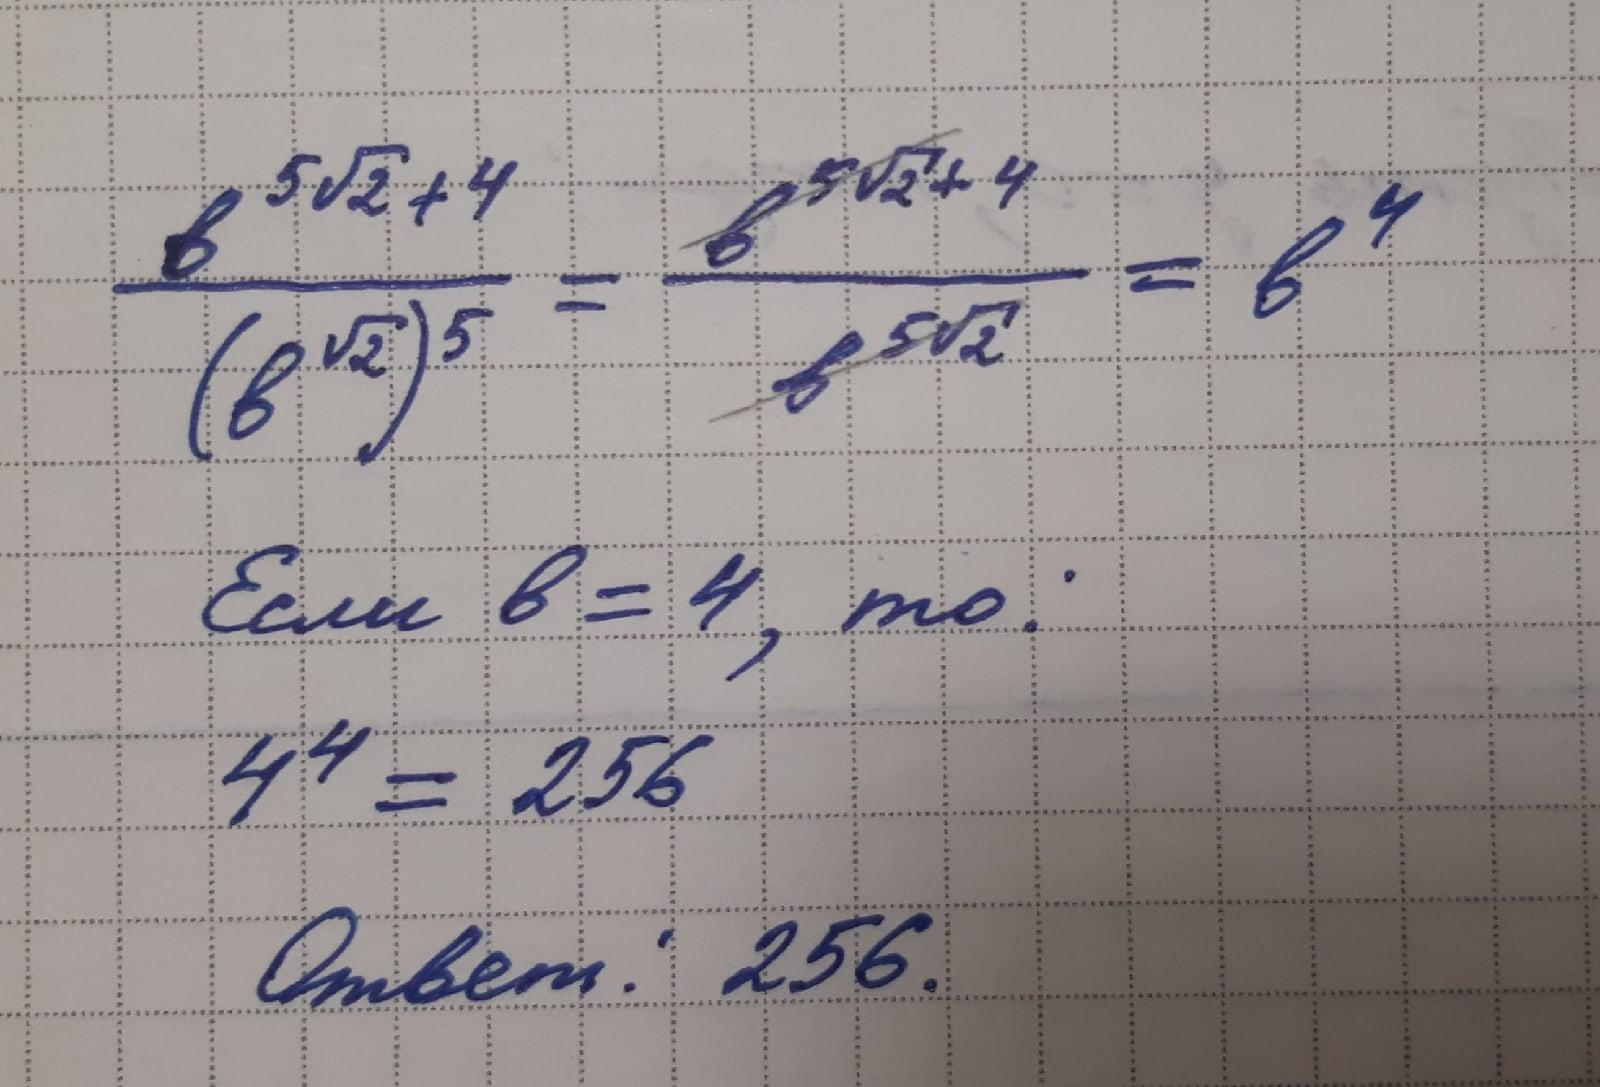 в^(5√2+4) / (в^√2)^5 = в^(5√2+4) / в^(5√2) = в^4
Если в = 4, то:
4^4 = 256
Ответ: 256.